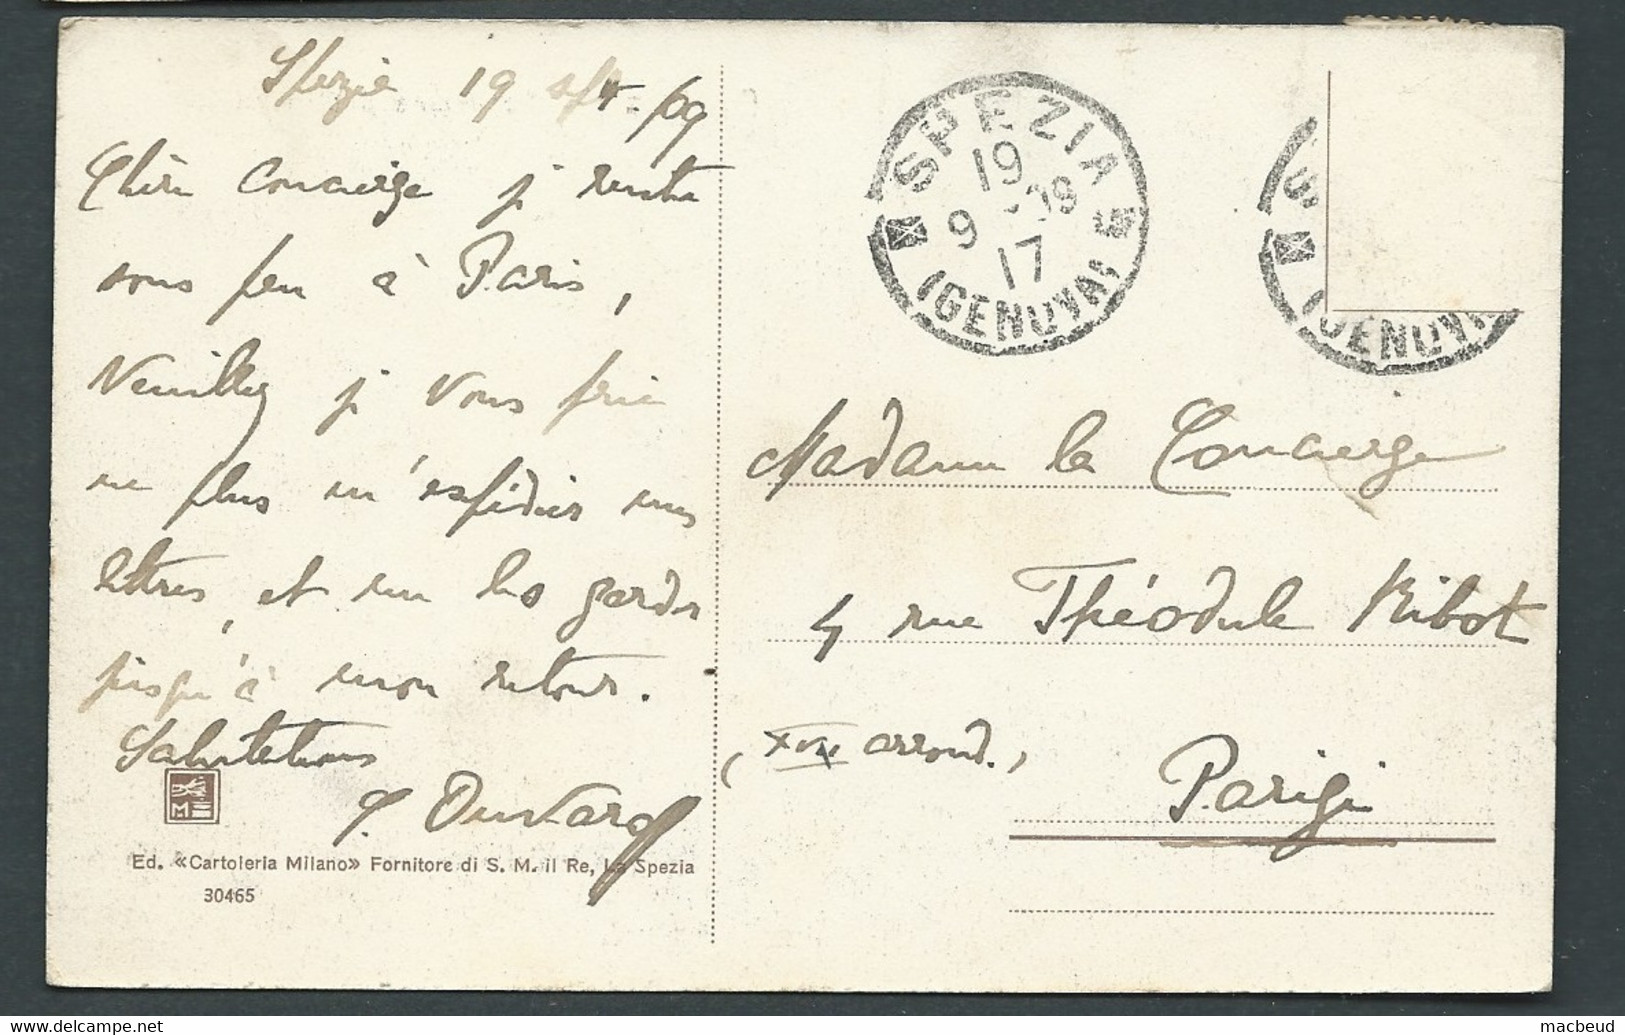 Spezia 19 sept. 09
Chère Concierge je rentre
sous peu à Paris,
Veuillez je vous prie
ne plus m'expédier mes
lettres, et me les garder
jusqu'à mon retour.
Salutations
Ed. «Cartoleria Milano» Fornitore di S. M. il Re, La Spezia
30465
SPEZIA
19
9 - 09
17
(GENOVA)
S
(GENOVA
Madame la Concierge
4 rue Théodule Ribot
(XVII arrond.)
Parigi
macbeud